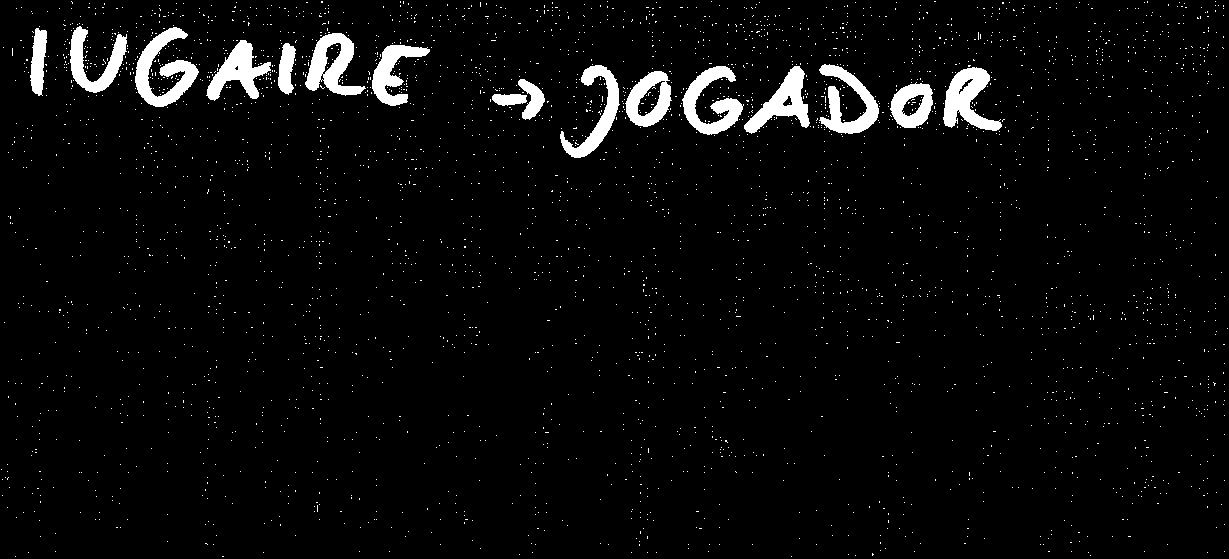 IUGAIRE → JOGADOR